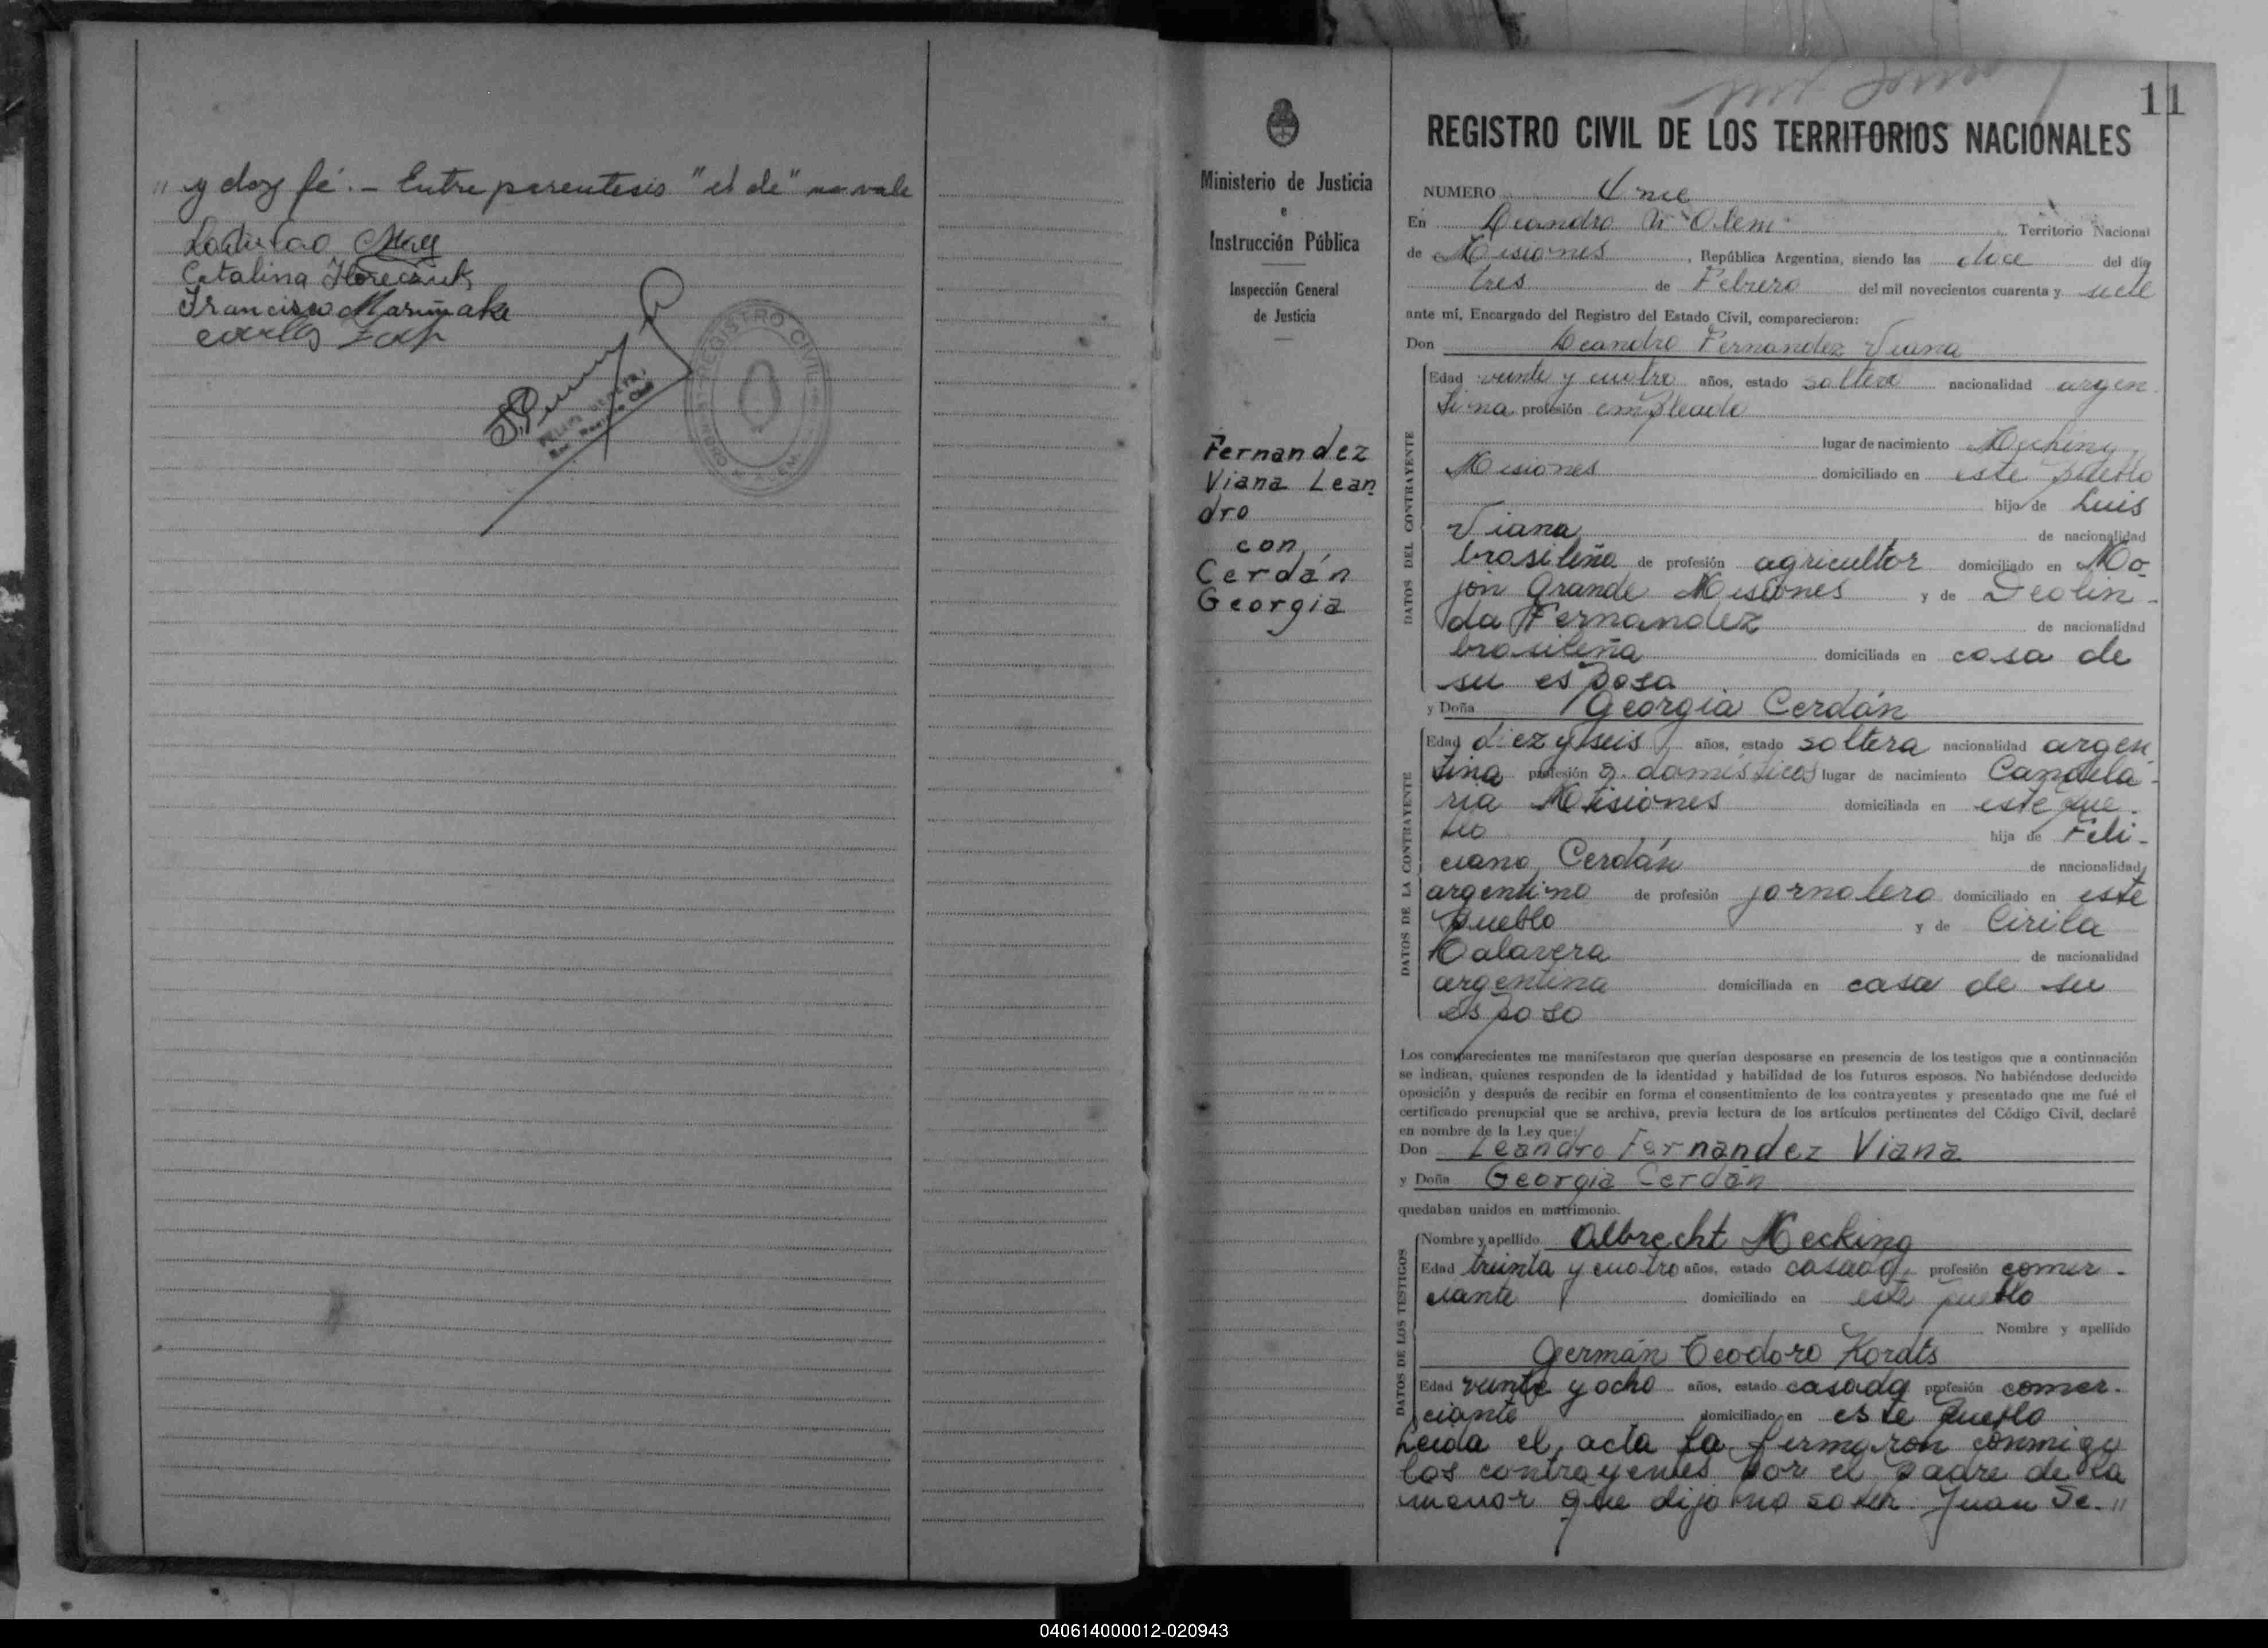 " y doy fé. - Entre parentesis "el de" no vale
Catalina
Francisco
REGISTRO CIVIL
11
REGISTRO CIVIL DE LOS TERRITORIOS NACIONALES
Ministerio de Justicia
e
Instrucción Pública
Inspección General
de Justicia
Fernandez
Viana Lean
dro
con
Cerdán
Georgia
NUMERO Once
En Leandro N. Alem Territorio Nacional
de Misiones, República Argentina, siendo las doce del día
tres de Febrero del mil novecientos cuarenta y siete
ante mí, Encargado del Registro del Estado Civil, comparecieron:
Don Leandro Fernandez Viana
DATOS DEL CONTRAYENTE
Edad veinte y cuatro años, estado soltero nacionalidad argen
tina profesión empleado
lugar de nacimiento
Misiones domiciliado en este pueblo
hijo de Luis
Viana de nacionalidad
brasileña de profesión agricultor domiciliado en Mo-
jón Grande Misiones y de Deolin-
da Fernandez de nacionalidad
brasileña domiciliada en casa de
su esposo
y Doña Georgia Cerdán
DATOS DE LA CONTRAYENTE
Edad diez y seis años, estado soltera nacionalidad argen
tina profesión q. domésticos lugar de nacimiento Candela-
ria Misiones domiciliada en este pue-
blo hija de Feli-
ciano Cerdán de nacionalidad
argentino de profesión jornalero domiciliado en este
pueblo y de Cirila
Talavera de nacionalidad
argentina domiciliada en casa de su
esposo
Los comparecientes me manifestaron que querían desposarse en presencia de los testigos que a continuación
se indican, quienes responden de la identidad y habilidad de los futuros esposos. No habiéndose deducido
oposición y después de recibir en forma el consentimiento de los contrayentes y presentado que me fué el
certificado prenupcial que se archiva, previa lectura de los artículos pertinentes del Código Civil, declaré
en nombre de la Ley que:
Don Leandro Fernandez Viana
y Doña Georgia Cerdán
quedaban unidos en matrimonio.
DATOS DE LOS TESTIGOS
Nombre y apellido Albrecht Mecking
Edad treinta y cuatro años, estado casado, profesión comer-
ciante domiciliado en este pueblo
Nombre y apellido
Germán Teodoro Kordts
Edad veinte y ocho años, estado casado profesión comer-
ciante domiciliado en este pueblo
Leida el acta la firmaron conmigo
los contrayentes por el padre de la
menor que dijo no saber Juan Se. "
040614000012-020943